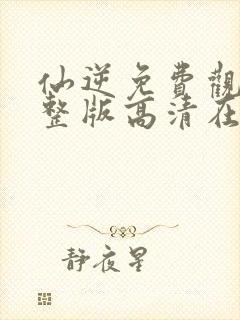 仙逆免費觀
整版高清在
靜夜星